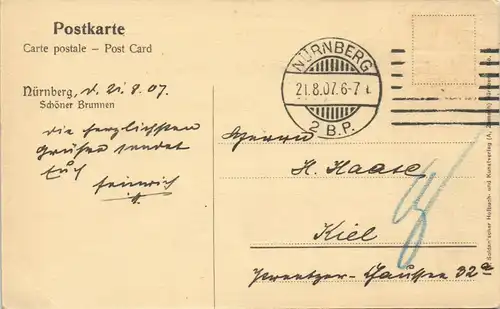 Postkarte
Carte postale – Post Card
Nürnberg, d. 21.8.07.
Schöner Brunnen
die herzlichsten
Grüße sendet
Euch
Heinrich
NÜRNBERG
21.8.07.6-7
2 B.P.
Herrn
H. Haase
Kiel
Chaussee 32a